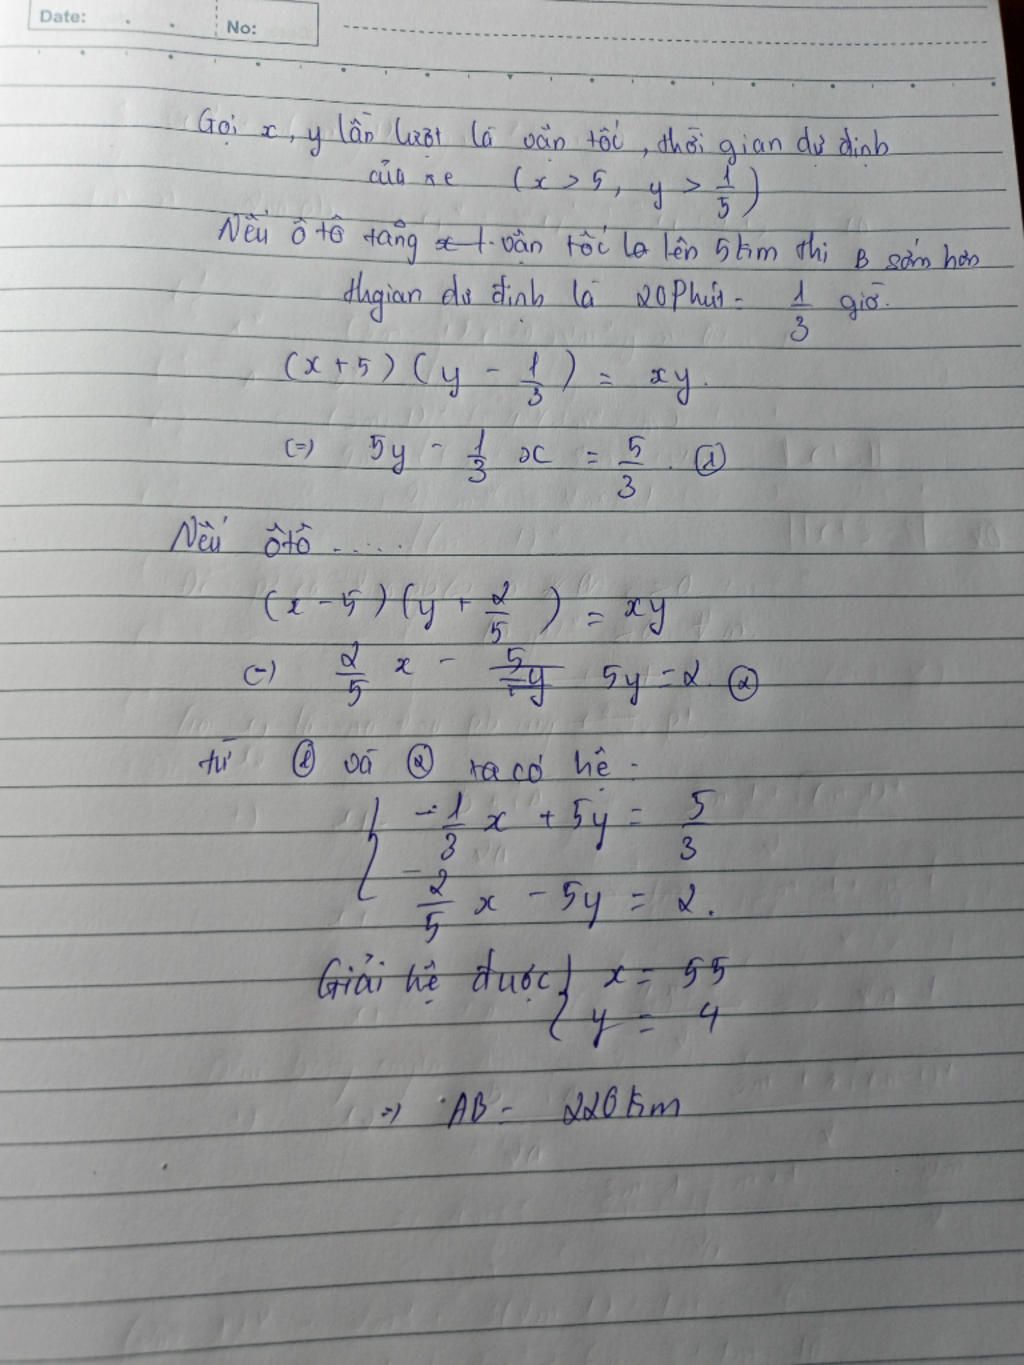 Date:
No:
Gọi x, y lần lượt là vận tốc, thời gian dự định
của xe (x > 5, y > 1/5)
Nếu ô tô tăng vận tốc lên 5km thì B sớm hơn
thgian dự định là 20 Phút = 1/3 giờ.
(x + 5)(y - 1/3) = xy.
(=) 5y - 1/3 x = 5/3. ①
Nếu ôtô .....
(x - 5)(y + 2/5) = xy
(=) 2/5 x - 5y = 2. ②
từ ① và ② ta có hệ:
{ -1/3 x + 5y = 5/3
2/5 x - 5y = 2.
Giải hệ được { x = 55
y = 4
=> AB = 220km